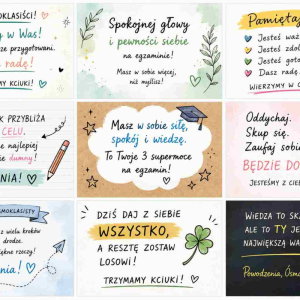 MOKLASIŚCI!
y w Was!
ze przygotowani.
radę!
MY KCIUKI!
Spokojnej głowy
i pewności siebie
na egzaminie!
Masz w sobie więcej,
niż myślisz!
Pamiętaj
Jesteś waż
Jesteś zdol
Jesteś goto
Dasz radę!
WIERZYMY W C
K PRZYBLIŻA
CELU.
e najlepiej
ie dumny!
NIA!
Masz w sobie siłę,
spokój i wiedzę.
To Twoje 3 supermoce
na egzamin!
Oddychaj.
Skup się.
Zaufaj sobie
BĘDZIE DO
JESTEŚMY Z CIE
SMOKLASISTY
z wielu kroków
drodze.
piękne rzeczy!
nia!
DZIŚ DAJ Z SIEBIE
WSZYSTKO,
A RESZTĘ ZOSTAW
LOSOWI!
TRZYMAMY KCIUKI!
WIEDZA TO SKA
ALE TO TY JE
NAJWIĘKSZĄ WAR
Powodzenia, Ósmo